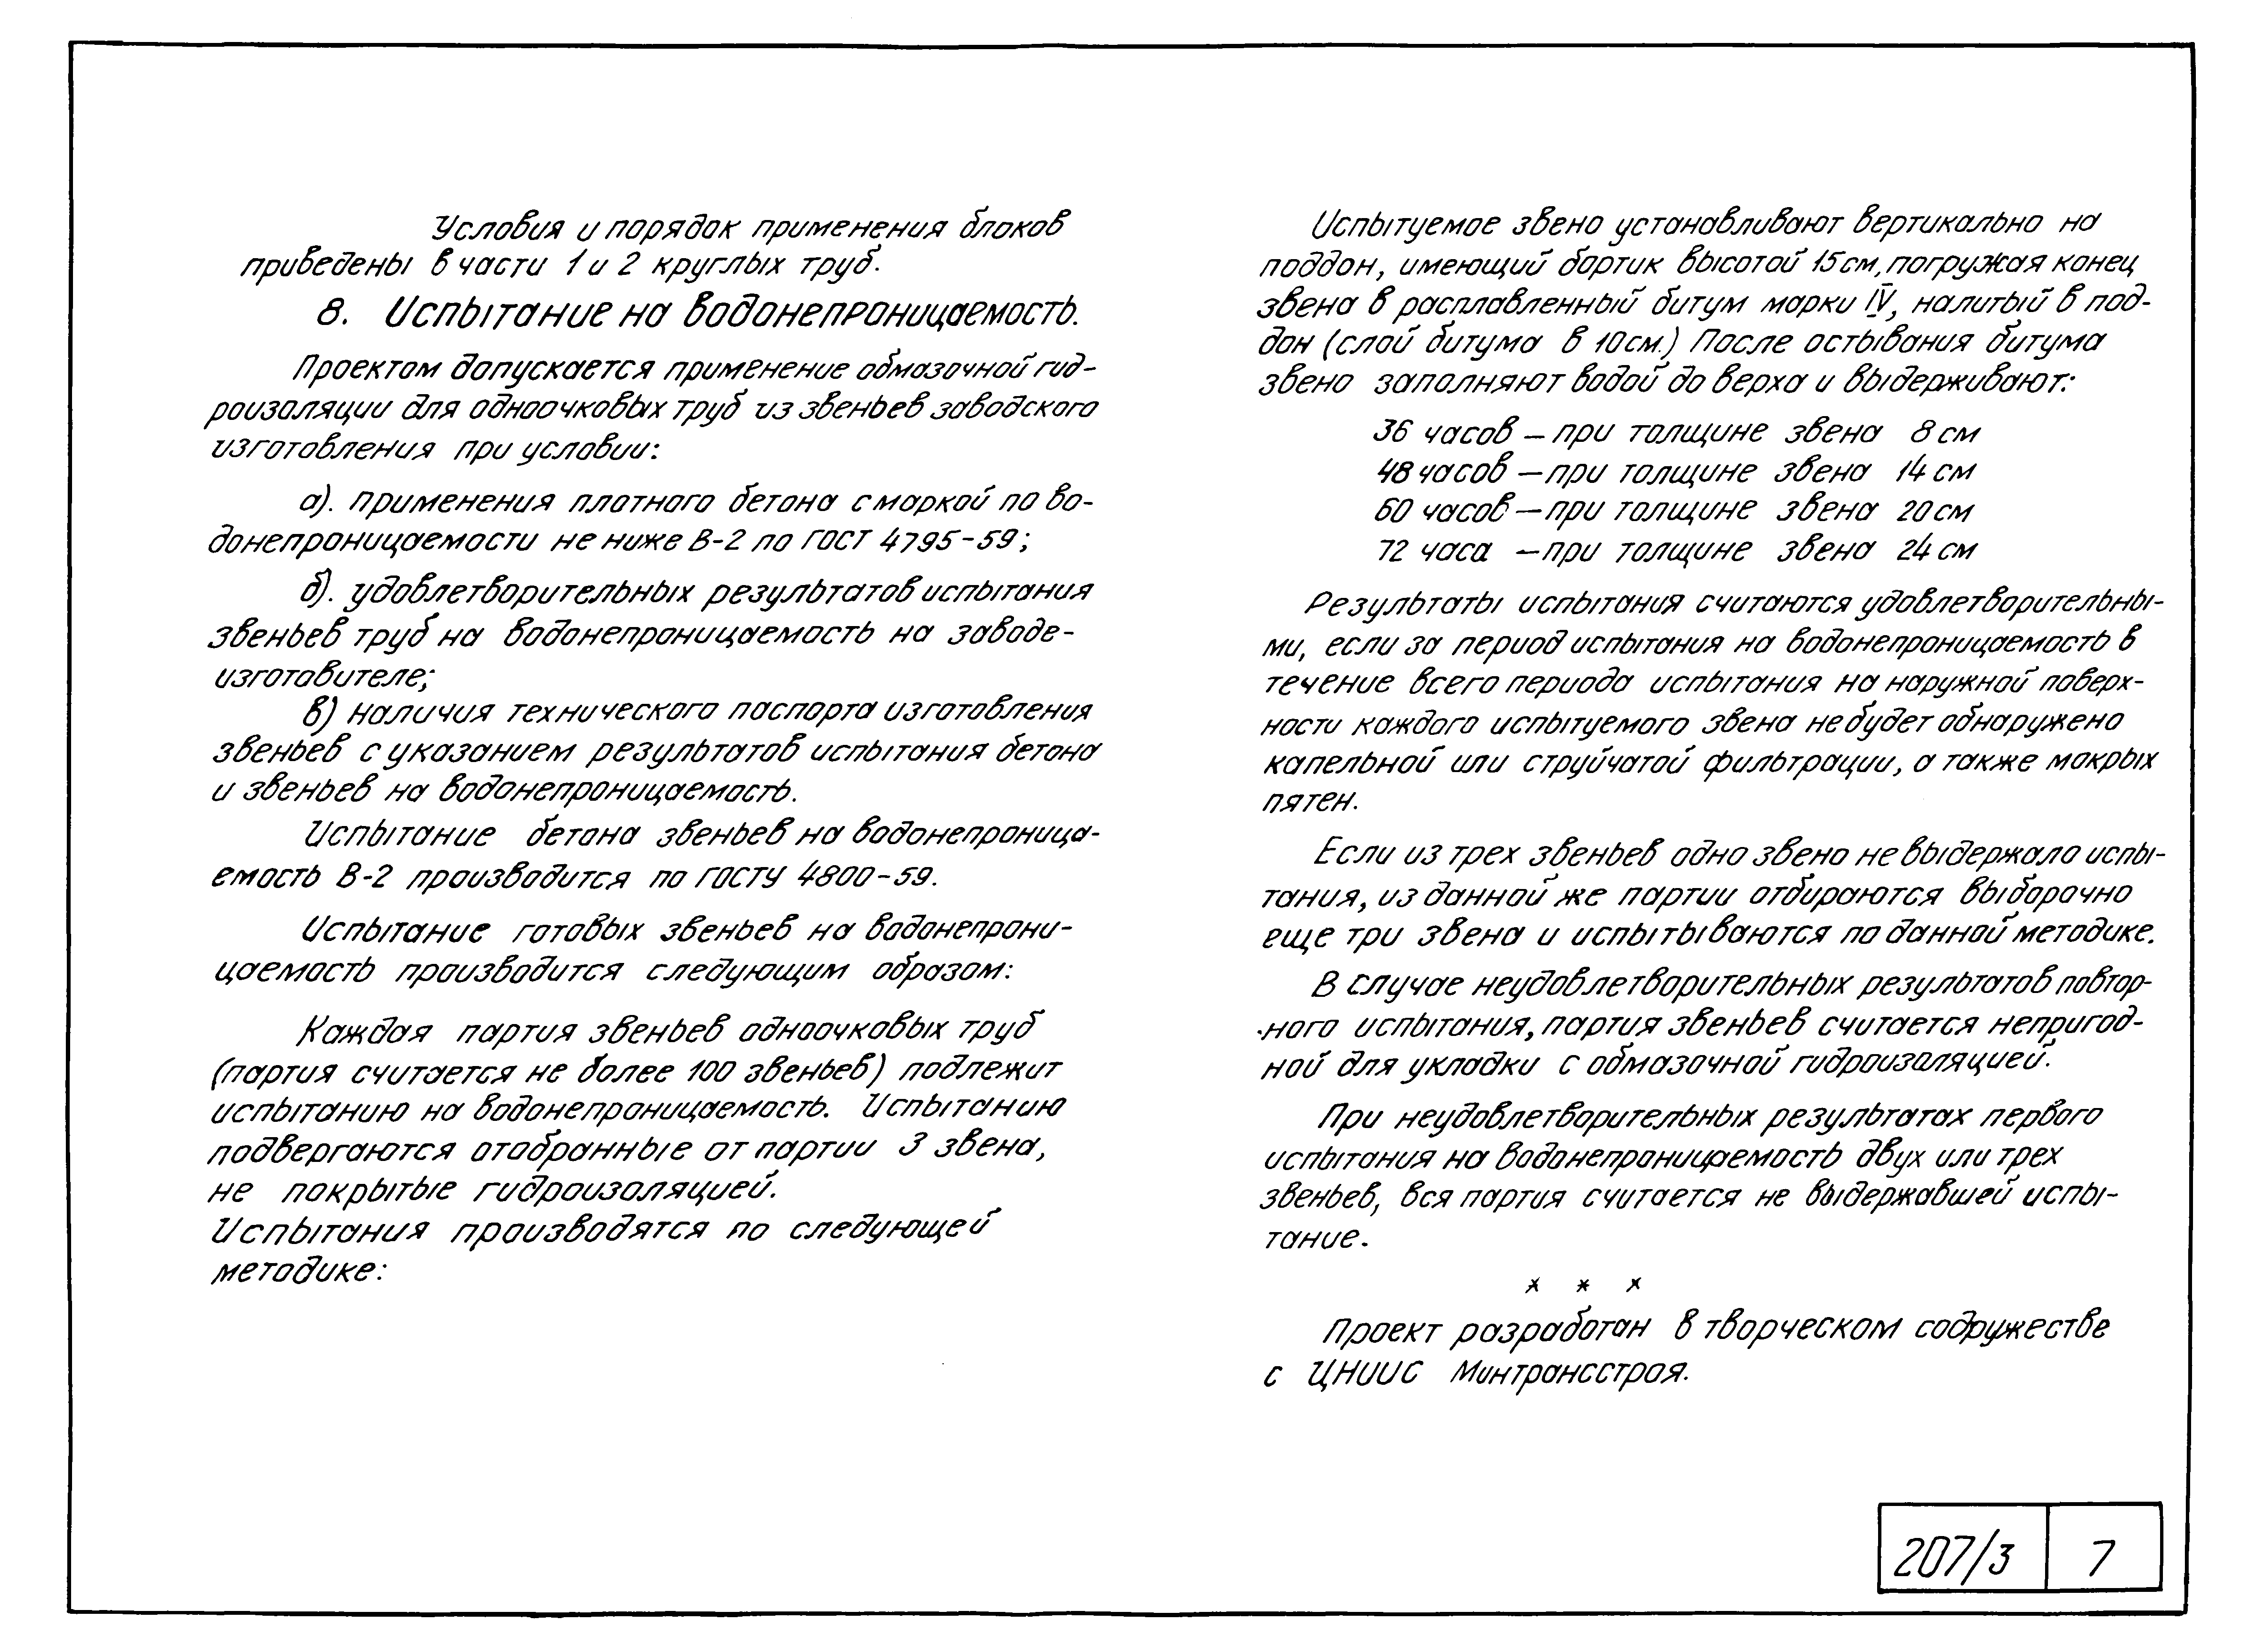 Условия и порядок применения блоков
приведены в части 1 и 2 круглых труб.
8. Испытание на водонепроницаемость.
Проектом допускается применение обмазочной гид-
роизоляции для одноочковых труб из звеньев заводского
изготовления при условии:
а). применения плотного бетона с маркой по во-
донепроницаемости не ниже В-2 по ГОСТ 4795-59;
б). удовлетворительных результатов испытания
звеньев труб на водонепроницаемость на заводе-
изготовителе;
в) наличия технического паспорта изготовления
звеньев с указанием результатов испытания бетона
и звеньев на водонепроницаемость.
Испытание бетона звеньев на водонепроница-
емость В-2 производится по ГОСТУ 4800-59.
Испытание готовых звеньев на водонепрони-
цаемость производится следующим образом:
Каждая партия звеньев одноочковых труб
(партия считается не более 100 звеньев) подлежит
испытанию на водонепроницаемость. Испытанию
подвергаются отобранные от партии 3 звена,
не покрытые гидроизоляцией.
Испытания производятся по следующей
методике:
Испытуемое звено устанавливают вертикально на
поддон, имеющий бортик высотой 15 см, погружая конец
звена в расплавленный битум марки IV, налитый в под-
дон (слой битума в 10 см.) После остывания битума
звено заполняют водой до верха и выдерживают:
36 часов — при толщине звена 8 см
48 часов — при толщине звена 14 см
60 часов — при толщине звена 20 см
72 часа — при толщине звена 24 см
Результаты испытания считаются удовлетворительны-
ми, если за период испытания на водонепроницаемость в
течение всего периода испытания на наружной поверх-
ности каждого испытуемого звена не будет обнаружено
капельной или струйчатой фильтрации, а также мокрых
пятен.
Если из трех звеньев одно звено не выдержало испы-
тания, из данной же партии отбираются выборочно
еще три звена и испытываются по данной методике.
В случае неудовлетворительных результатов повтор-
ного испытания, партия звеньев считается непригод-
ной для укладки с обмазочной гидроизоляцией.
При неудовлетворительных результатах первого
испытания на водонепроницаемость двух или трех
звеньев, вся партия считается не выдержавшей испы-
тание.
* * *
Проект разработан в творческом содружестве
с ЦНИИС Минтрансстроя.
207/3 7